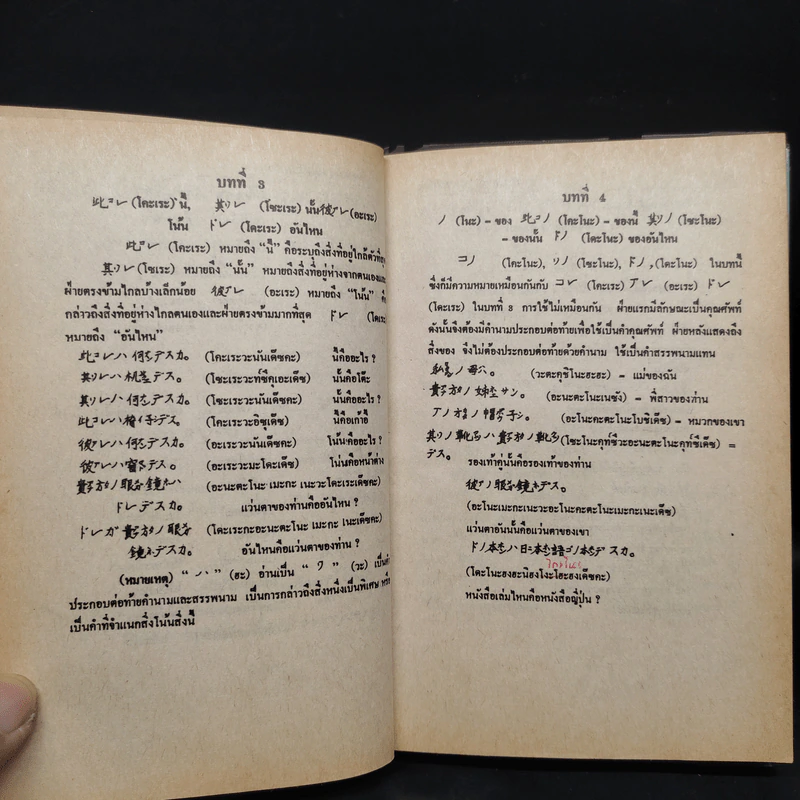 บทที่ 3
此コレ (โคะเระ) นี้, 其ソレ (โซะเระ) นั้น 彼アレ (อะเระ)
โน้น ドレ (โดะเระ) อันไหน
此コレ (โคะเระ) หมายถึง “นี้” คือระบุถึงสิ่งที่อยู่ใกล้ตัวที่สุด
其ソレ (โซเระ) หมายถึง “นั้น” หมายถึงสิ่งที่อยู่ห่างจากตนเองและ
ฝ่ายตรงข้ามไกลบ้างเล็กน้อย 彼アレ (อะเระ) หมายถึง “โน้น” คื
กล่าวถึงสิ่งที่อยู่ห่างไกลตนเองและฝ่ายตรงข้ามมากที่สุด ドレ (โดเระ
หมายถึง “อันไหน”
此コレハ 何ナンデスカ。 (โคะเระวะนันเด๊ซคะ) นี้คืออะไร ?
其ソレハ 机デス。 (โซะเระวะท์ซึคุเอะเด๊ซ) นั้นคือโต๊ะ
其ソレハ 何ナンデスカ。 (โซะเระวะนันเด๊ซคะ) นั้นคืออะไร ?
此コレハ 椅イ子スデス。 (โคะเระวะอิซุเด๊ซ) นี้คือเก้าอี้
彼アレハ 何ナンデスカ。 (อะเระวะนันเด๊ซคะ) โน้นคืออะไร ?
彼アレハ 窓マドデス。 (อะเระวะมะโดะเด๊ซ) โน่นคือหน้าต่าง
貴アナ方タノ 眼メガネ鏡ハ (อะนะตะโนะ เมะกะ เนะวะโดะเระเด๊ซคะ)
ドレデスカ。 แว่นตาของท่านคืออันไหน ?
ドレガ 貴アナ方タノ 眼メガ (โดะเระกะอะนะตะโนะ เมะกะ เนะเด๊ซคะ)
鏡ネデスカ。 อันไหนคือแว่นตาของท่าน ?
(หมายเหตุ) “ハ” (ฮะ) อ่านเป็น “ワ” (วะ) เป็นคำ
ประกอบต่อท้ายคำนามและสรรพนาม เป็นการกล่าวถึงสิ่งหนึ่งเป็นพิเศษ หรือ
เป็นคำที่จำแนกสิ่งโน้นสิ่งนี้
บทที่ 4
ノ (โนะ) – ของ 此コノ (โคะโนะ) – ของนี้ 其ソノ (โซะโนะ)
– ของนั้น ドノ (โดะโนะ) ของอันไหน
コノ (โคะโนะ), ソノ (โซะโนะ), ドノ, (โดะโนะ) ในบทนี้
ซึ่งก็มีความหมายเหมือนกันกับ コレ (โคะเระ) アレ (อะเระ) ドレ
(โดะเระ) ในบทที่ 3 การใช้ไม่เหมือนกัน ฝ่ายแรกมีลักษณะเป็นคุณศัพท์
ดังนั้นจึงต้องมีคำนามประกอบต่อท้ายเพื่อใช้เป็นคำคุณศัพท์ ฝ่ายหลังแสดงถึง
สิ่งของ จึงไม่ต้องประกอบต่อท้ายด้วยคำนาม ใช้เป็นคำสรรพนามแทน
私ノ 母ハハ。 (วะตะคุชิโนะฮะฮะ) – แม่ของฉัน
貴アナ方タノ 姉ネエサン。 (อะนะตะโนะเนซัง) – พี่สาวของท่าน
アノ方カタノ 帽ボウ子シ。 (อะโนะคะตะโนะโบชิเด๊ซ) – หมวกของเขา
其ソノ 靴クツハ 貴アナ方タノ 靴クツ (โซะโนะคุท์ซึวะอะนะตะโนะคุท์ซึเด๊ซ) =
デス。 รองเท้าคู่นั้นคือรองเท้าของท่าน
彼アノ 眼メガネ鏡デス。
(อะโนะเมะกะเนะวะอะโนะคะตะโนะเมะกะเนะเด๊ซ)
แว่นตาอันนั้นคือแว่นตาของเขา
ドノ本ホンハ日ニ本ホン語ゴノ本ホンデスカ。
(โดะโนะฮงฮะนิฮงโงะโฮะฮงเด๊ซคะ)
หนังสือเล่มไหนคือหนังสือญี่ปุ่น ?